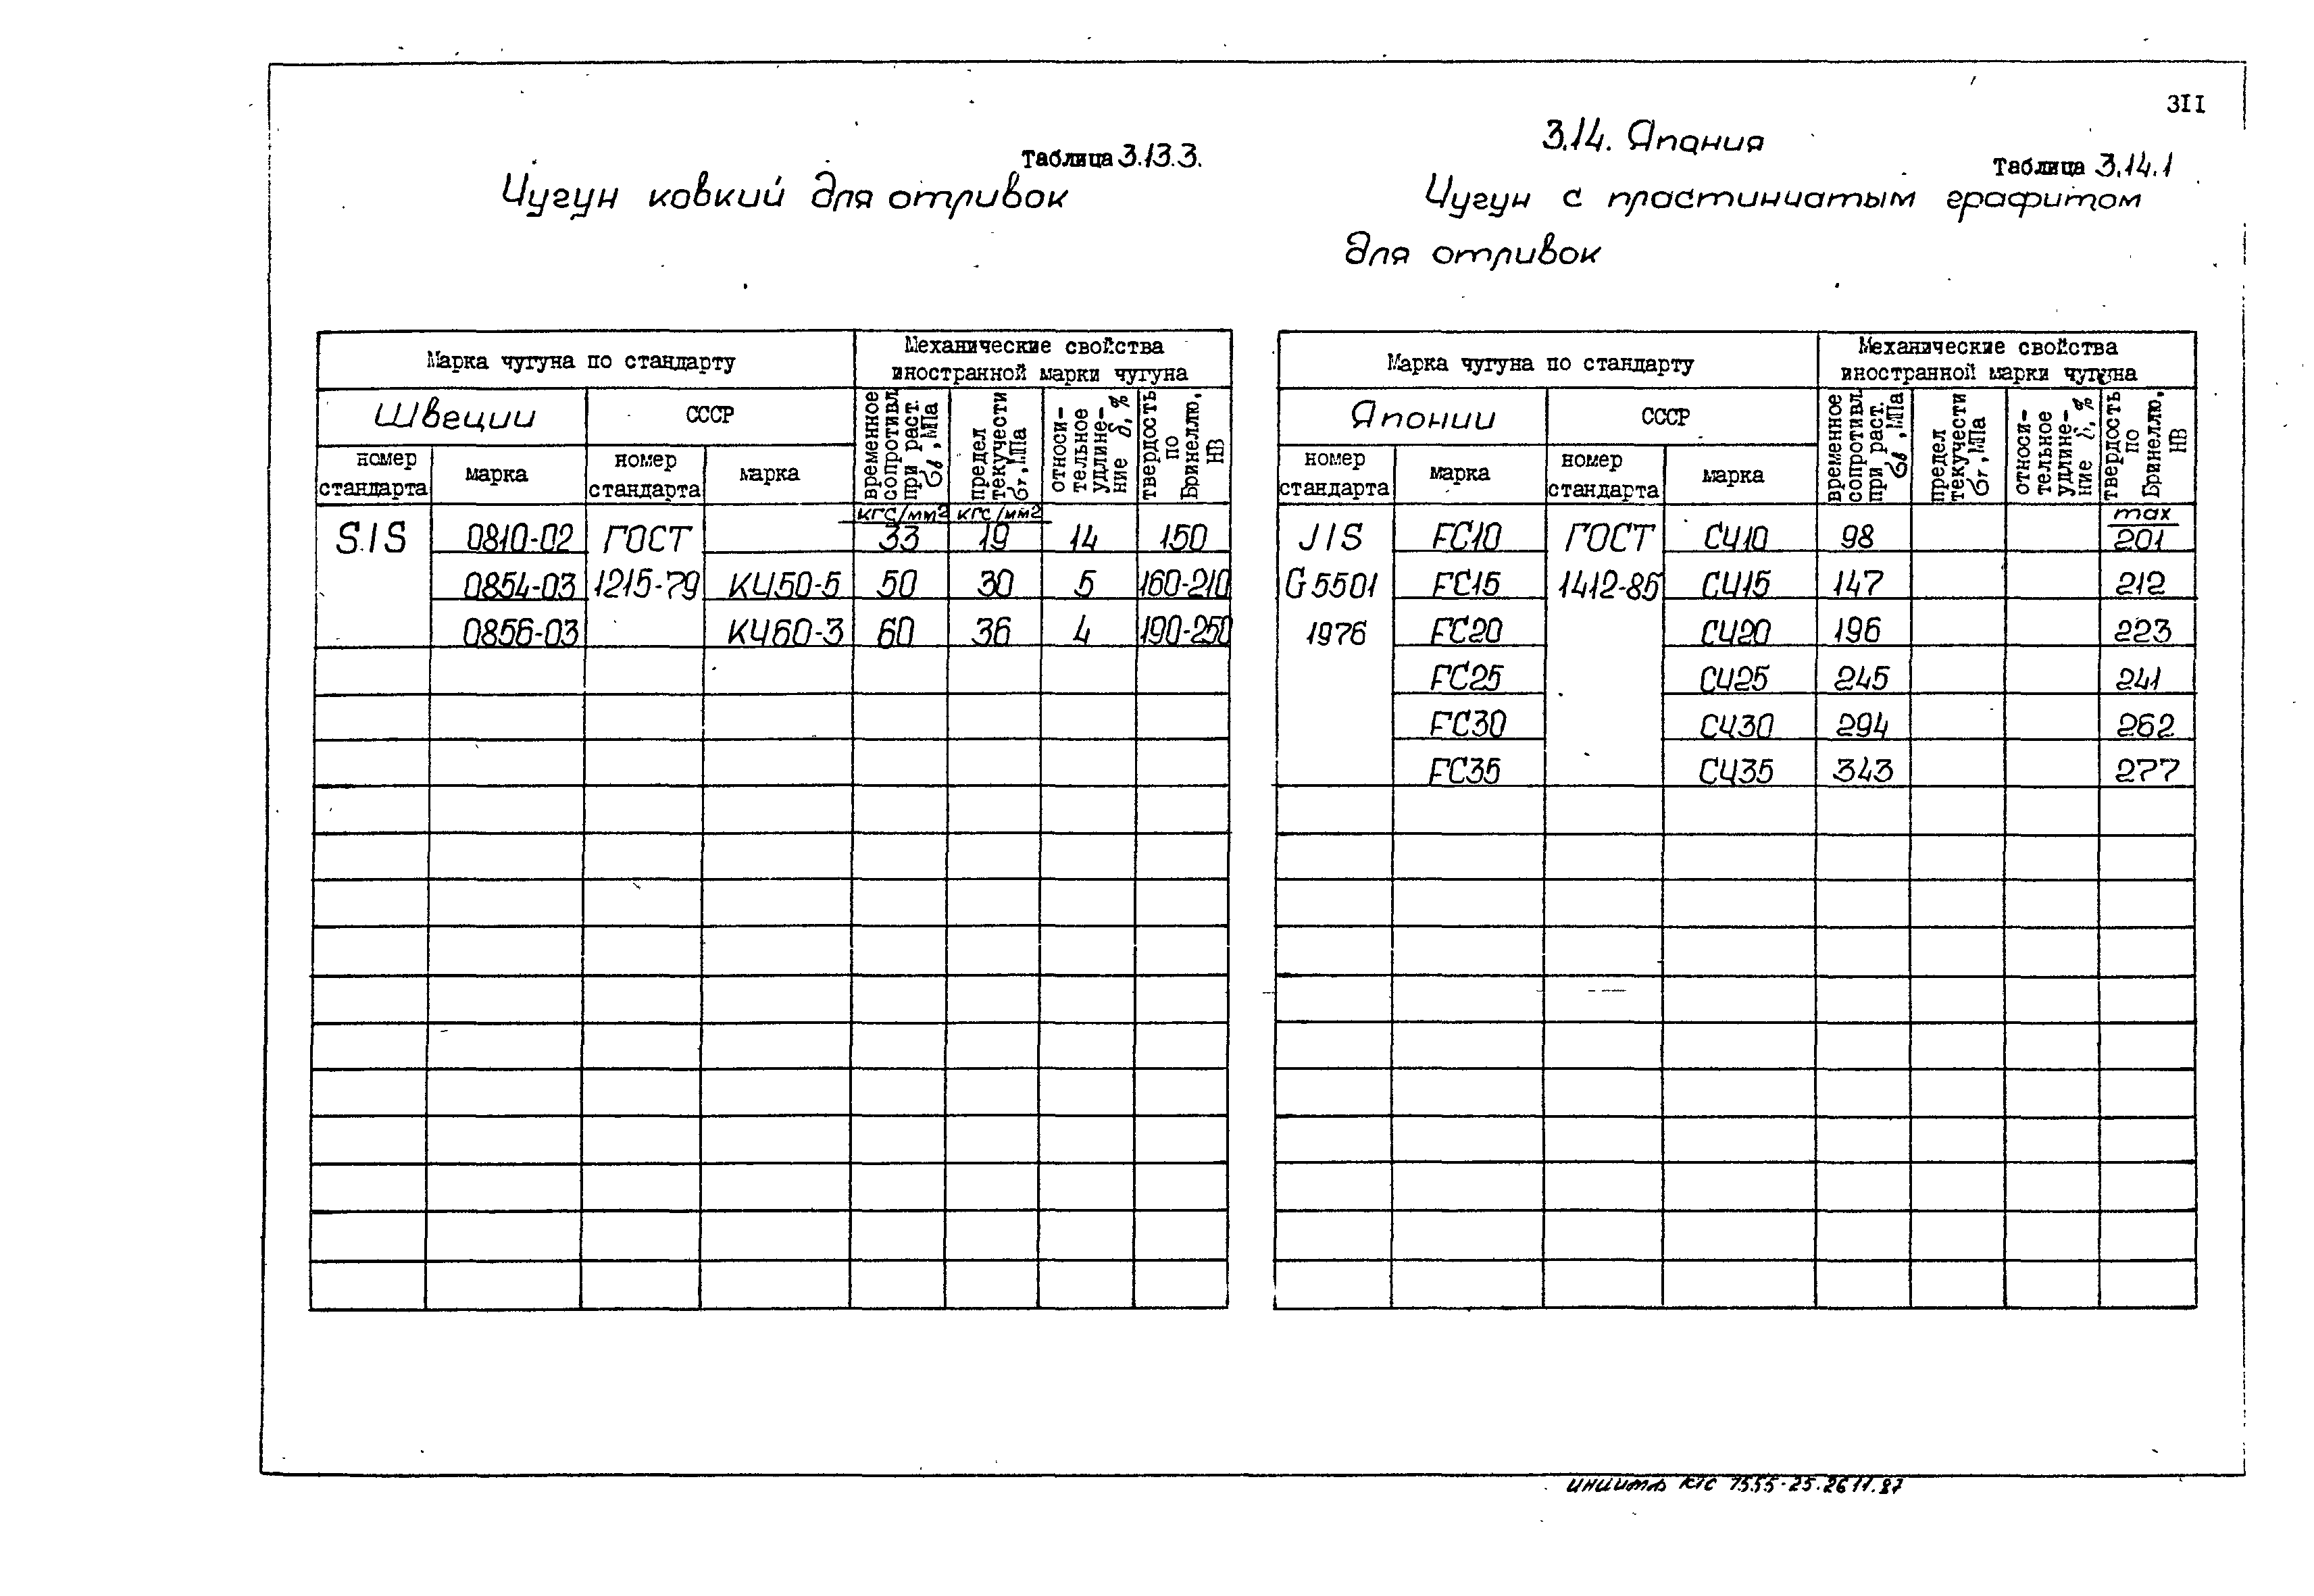 311
Таблица 3.13.3.
Чугун ковкий для отливок
Марка чугуна по стандарту
Механические свойства
иностранной марки чугуна
Швеции
СССР
номер
стандарта
марка
номер
стандарта
марка
временное
сопротивл.
при раст.
σв, МПа
предел
текучести
σт, МПа
относи-
тельное
удлине-
ние δ, %
твердость
по
Бринеллю,
НВ
кгс/мм2 кгс/мм2
SIS 0810-02 ГОСТ 33 19 14 150
0854-03 1215-79 КЧ50-5 50 30 5 160-210
0856-03 КЧ60-3 60 36 4 190-250
3.14. Япония
Таблица 3.14.1
Чугун с пластинчатым графитом
для отливок
Марка чугуна по стандарту
Механические свойства
иностранной марки чугуна
Японии
СССР
номер
стандарта
марка
номер
стандарта
марка
временное
сопротивл.
при раст.
σв, МПа
предел
текучести
σт, МПа
относи-
тельное
удлине-
ние δ, %
твердость
по
Бринеллю,
НВ
max
JIS FC10 ГОСТ СЧ10 98 201
G5501 FC15 1412-85 СЧ15 147 212
1976 FC20 СЧ20 196 223
FC25 СЧ25 245 241
FC30 СЧ30 294 262
FC35 СЧ35 343 277
КТС 7555-25.26.11.87